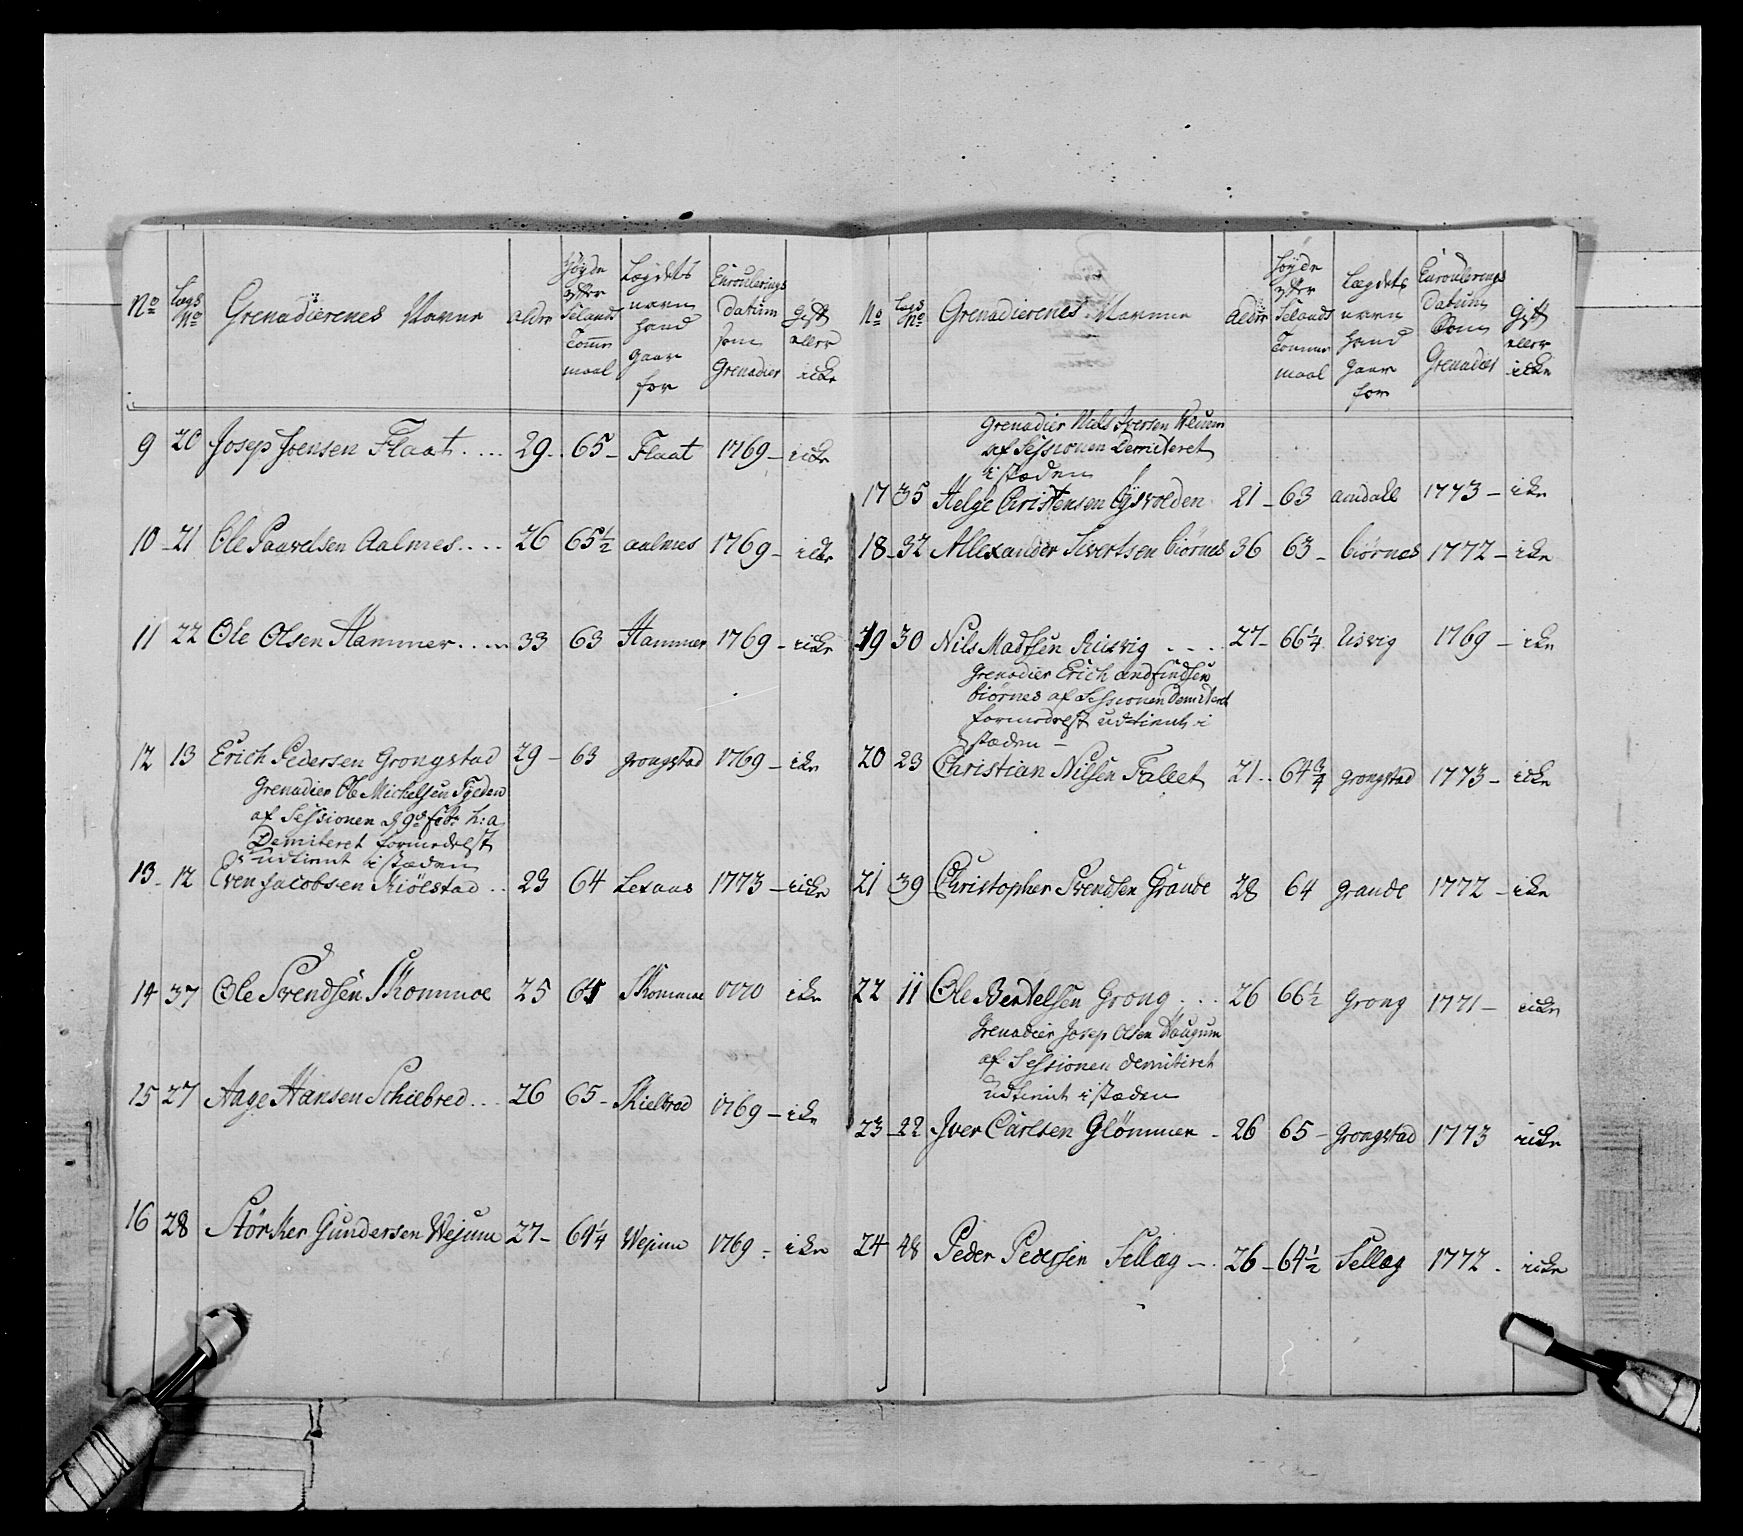 No Lægs No Grenadierenes Navne Alder Høyde efter Selands Tomme maal Lægdets navn hand gaar for Enroulerings Datum som Grenadier Gift eller icke
9 20 Josep Joensen Flaat .... 29 - 65 - Flaat 1769 - icke
10 - 21 Ole Paavelsen Aalmes .... 26 65½ aalmes 1769 - icke
11 22 Ole Olsen Hammer .... 33 63 Hammer 1769 - icke
12 13 Erich Pedersen Grongstad 29 - 63 grongstad 1769 - icke
Grenadier Ole Michelsen
af Sessionen d 9de h: a
Demiteret formedelst
udtient i stæden
13 - 12 Even Jacobsen Kiölstad .. 23 64 Lexaas 1773 - icke
14 37 Ole Svendsen Skommoe 25 64 Skommoe 1770 icke
15 27 Aage Hansen Schiebred ... 26 65 - Skielbred 1769 - icke
16 28 Störker Gundersen Wejum 27 - 64¼ Wejum 1769 - icke
No Lægs No Grenadierenes Navne Alder Høyde efter Selands Tomme maal Lægdets navn hand gaar for Enroulerings Datum Som Grenadier Gift eller icke
Grenadier Niels Iversen
af Sessionen Demiteret
i stæden
17 35 Helge Christensen 21 - 63 amdall 1773 - icke
18 - 32 Allexander Sivertsen biörnes 36 63 - biörnes 1772 - icke
19 30 Nils Madtsen Riisvig .... 27 - 66¼ Risvig 1769 - icke
Grenadier Erich andfindsen
biörnes af Sessionen Demiteret
formedelst udtient i
stæden -
20 23 Christian Nilsen Fallet 21 .. 64¾ grongstad 1773 - icke
21 39 Christopher Svendsen Grande 28 64 grande 1772 - icke
22 11 Ole Bertelsen Grong ... 26 66½ Grong 1771 - icke
Grenadier Josep Olsen Haugum
af Sessionen demiteret
udtient i stæden
23 - 22 Iver Carlsen Glömmen - 26 65 - grongstad 1773 icke
24 48 Peder Pedersen Sellæg - . 26 - 64½ Sellæg 1772 . icke